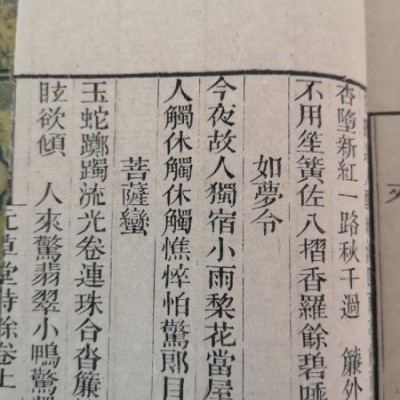 杏墮新紅一路秋千過　簾外
不用笙簧佐八摺香羅餘碧唾
如夢令
今夜故人獨宿小雨棃花當屋
人觸休觸休觸憔悴怕驚郎目
菩薩蠻
玉蛇躑躅流光卷連珠合沓簾
眩欲傾　人來驚翡翠小鴨驚
草堂詩餘卷上